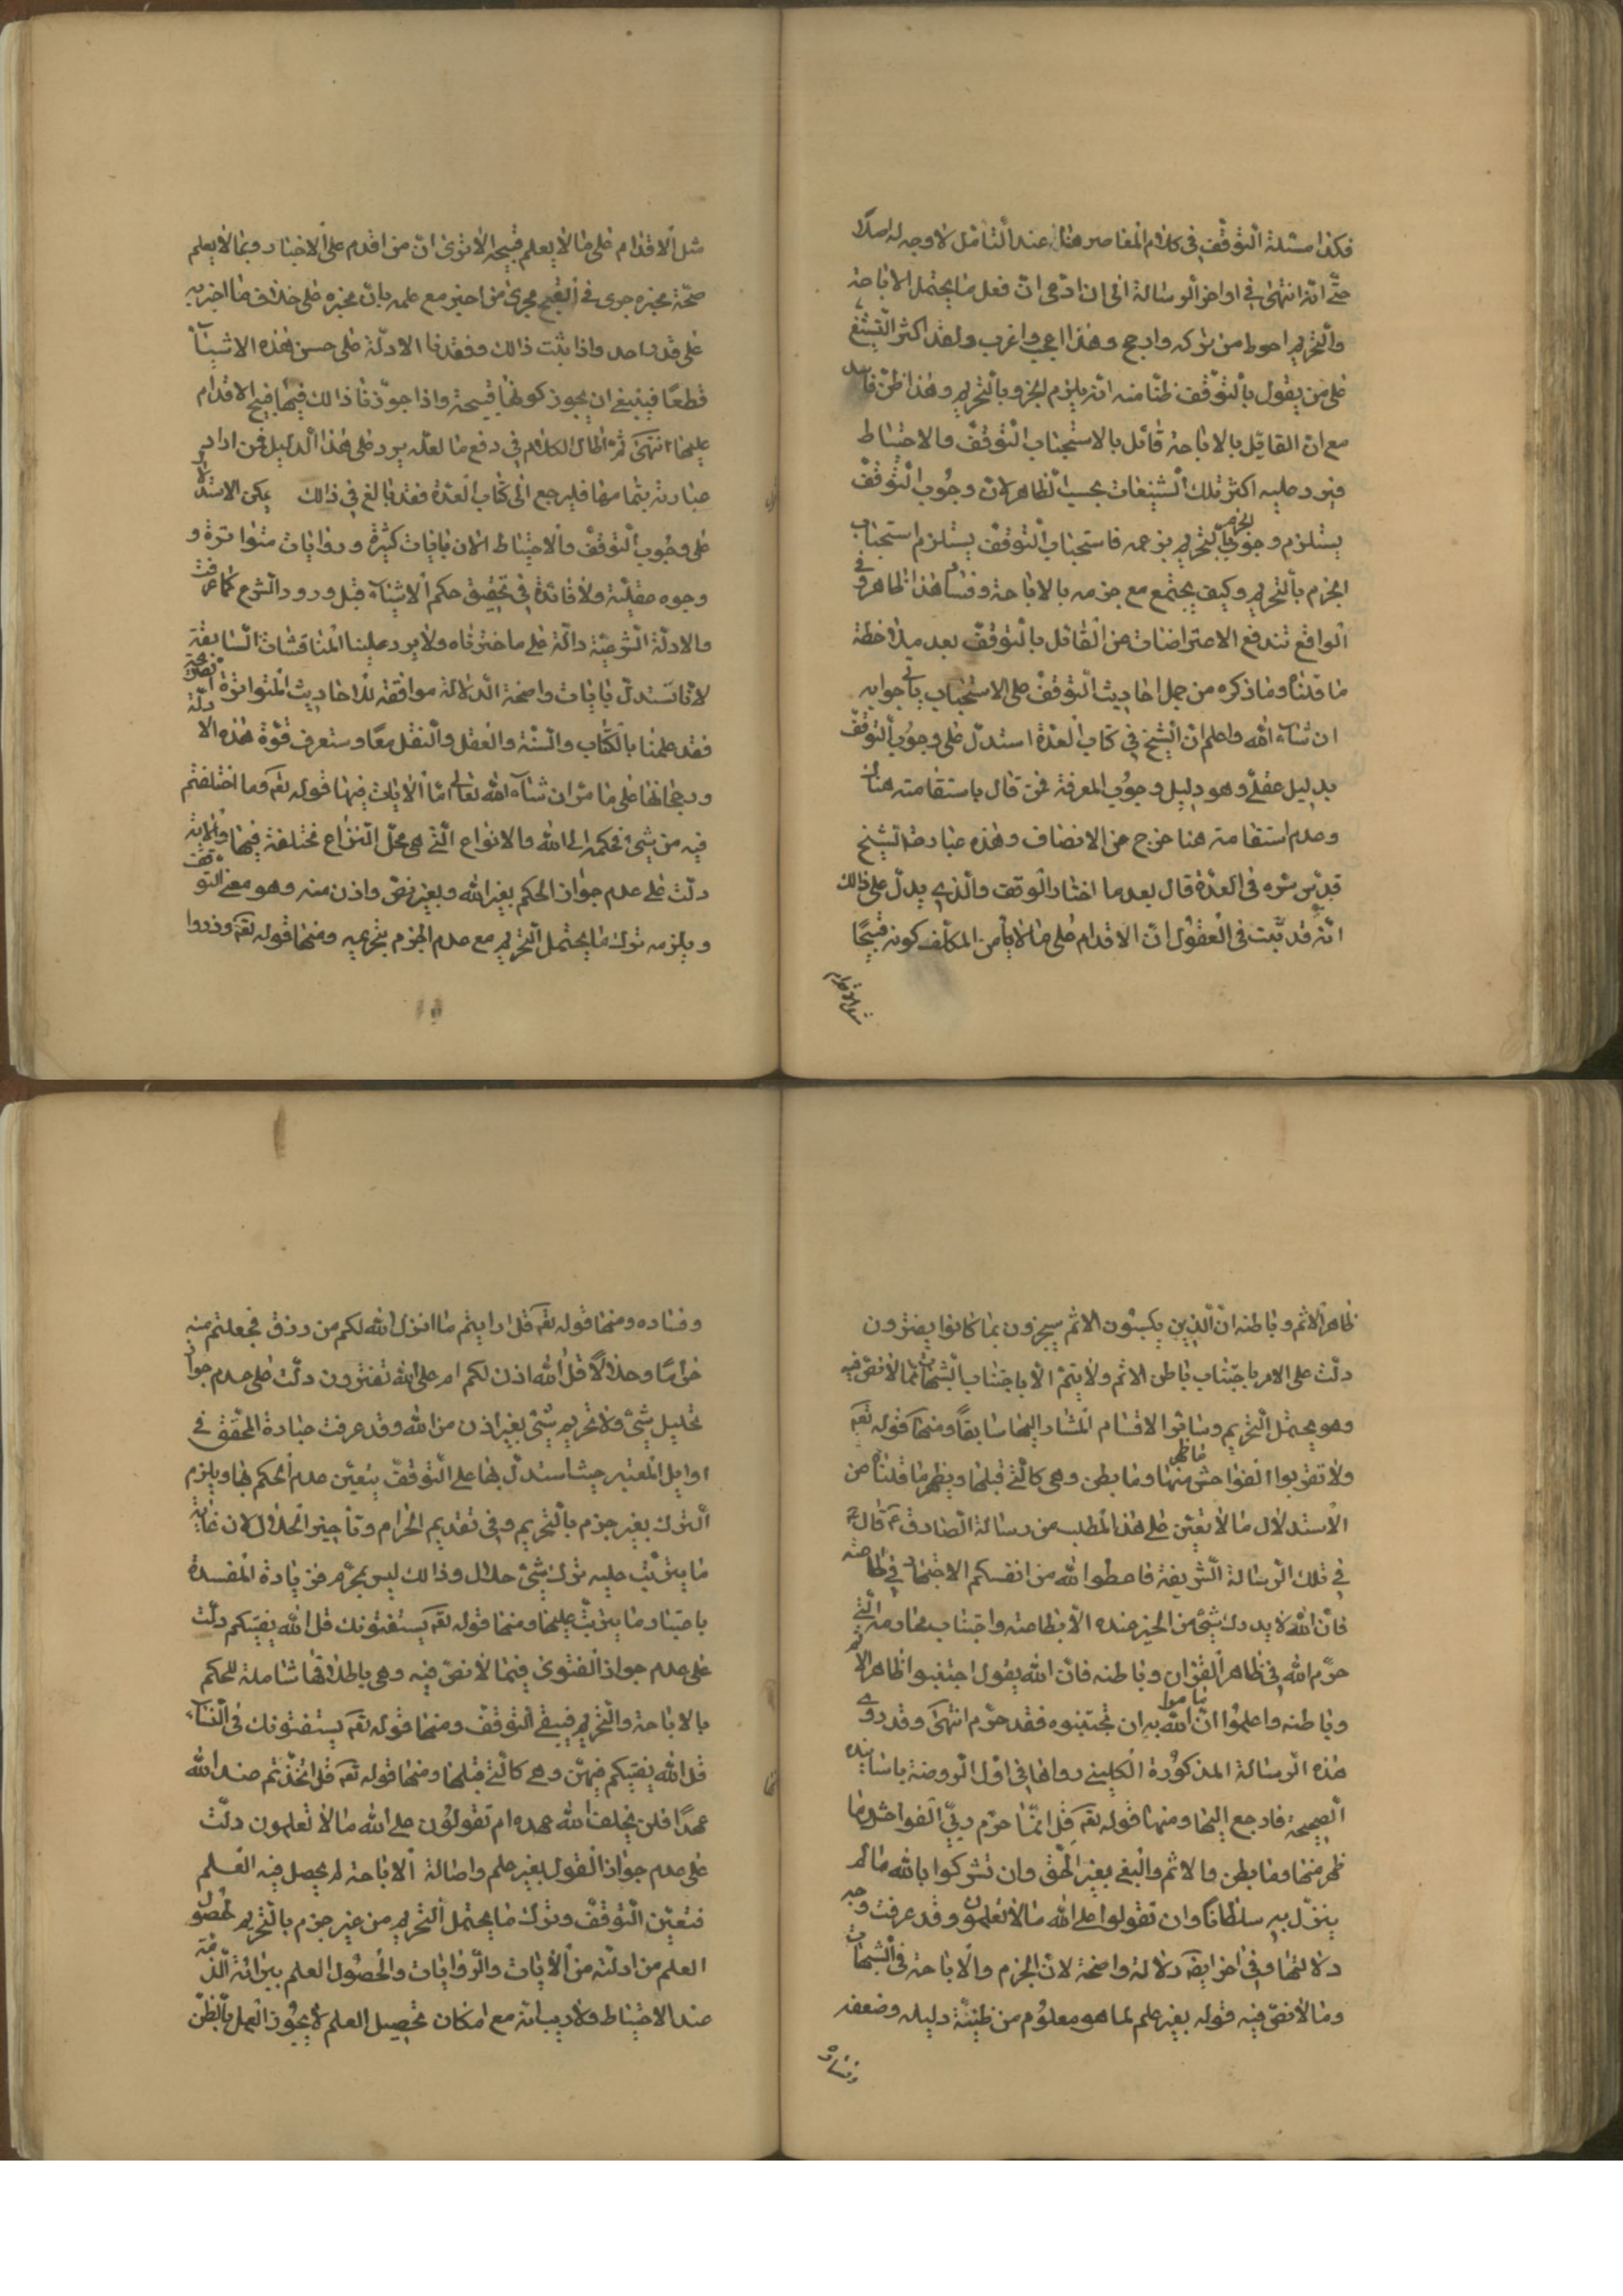 فكذا مسئلة التوقف في كلام المعاصر هنا عند التأمل لا وجه له اصلا
حتى انه انتهى في اواخر الرسالة الى ان ادعى ان فعل ما يحتمل الاباحة
والتحريم احوط من تركه وارجح وهذا اعجب واغرب ولقد اكثر التشنيع
على من يقول بالتوقف ظنا منه انه يلزم الجزم بالتحريم وهذا ظن فاسد
مع ان القائل بالاباحة قائل بالاستحباب التوقف والاحتياط
فيرد عليه اكثر تلك التشنيعات بحسب الظاهر لان وجوب التوقف
يستلزم وجوب الجزم بالتحريم بزعمه فاستحباب التوقف يستلزم استحباب
الجزم بالتحريم وكيف يجتمع مع جزمه بالاباحة وفساد هذا ظاهر وفي
الواقع تندفع الاعتراضات عن القائل بالتوقف بعد ملاحظة
ما قلناه وما ذكره من حمل احاديث التوقف على الاستحباب يأتي جوابه
ان شاء الله واعلم ان الشيخ في كتاب العدة استدل على وجوب التوقف
بدليل عقلي وهو دليل وجوب المعرفة فمن قال باستقامته هناك
وعدم استقامته هنا خرج عن الانصاف وهذه عبارة الشيخ
قدس سره في العدة قال بعد ما اختار الوقف والذي يدل على ذلك
انه قد ثبت في العقول ان الاقدام على ما لا يأمن المكلف كونه قبيحا
مثل الاقدام
مثل الاقدام على ما لا يعلم قبحه الا ترى ان من اقدم على الاخبار بما لا يعلم
صحة مخبره جرى في القبح مجرى من اخبر مع علمه بان مخبره على خلاف ما اخبر به
على حد واحد واذا ثبت ذلك وفقدنا الادلة على حسن هذه الاشياء
قطعا فينبغي ان يجوز كونها قبيحة واذا جوزنا ذلك فيها قبح الاقدام
عليها انتهى ثم اطال الكلام في دفع ما لعله يرد على هذا الدليل فمن اراد
عبارته بتمامها فليرجع الى كتاب العدة فقد بالغ في ذلك يمكن الاستدلال
على وجوب التوقف والاحتياط الان بايات كثيرة وروايات متواترة و
وجوه عقلية ولا فائدة في تحقيق حكم الاشياء قبل ورود الشرع كما عرفت
والادلة الشرعية دالة على ما اخترناه ولا يرد علينا المناقشات السابقة
لانا نستدل بايات واضحة الدلالة موافقة للاحاديث المتواترة الصريحة
فقد علمنا بالكتاب والسنة والعقل والنقل معا وستعرف قوة هذه الادلة
ورجحانها على ما مر ان شاء الله تعالى اما الايات فمنها قوله تع وما اختلفتم
فيه من شيء فحكمه الى الله والانواع التي هي محل النزاع مختلفة فيها والاية
دلت على عدم جواز الحكم بغير الله وبغير نص واذن منه وهو معنى التوقف
ويلزمه ترك ما يحتمل التحريم مع عدم الجزم بتحريمه ومنها قوله تع وذروا
ظاهر الاثم وباطنه ان الذين يكسبون الاثم سيجزون بما كانوا يقترفون
دلت على الامر باجتناب باطن الاثم ولا يتم الا باجتناب الشبهات مما لا نص فيه
وهو يحتمل التحريم وسائر الاقسام المشار اليها سابقا ومنها قوله تع
ولا تقربوا الفواحش ما ظهر منها وما بطن وهي كالتي قبلها ويظهر ما قلناه من
الاستدلال بالايتين على هذا المطلب من رسالة الصادق ع قال ع
في تلك الرسالة الشريفة فاعطوا الله من انفسكم الاجتهاد في طاعته
فان الله لا يدرك شيء من الخير عنده الا بطاعته واجتناب محارمه التي
حرم الله في ظاهر القران وباطنه فان الله يقول اجتنبوا ظاهر الاثم
وباطنه واعلموا ان ما امر الله به ان تجتنبوه فقد حرم انتهى وقد روى
هذه الرسالة المذكورة الكليني رواها في اول الروضة باسانيده
الصحيحة فارجع اليها ومنها قوله تع قل انما حرم ربي الفواحش ما
ظهر منها وما بطن والاثم والبغي بغير الحق وان تشركوا بالله ما لم
ينزل به سلطانا وان تقولوا على الله ما لا تعلمون وقد عرفت وجه
دلالتها وفي اخرها ايضا دلالة واضحة لان الجزم والاباحة في الشبهات
وما لا نص فيه قوله بغير علم لما هو معلوم من ظنية دليله وضعفه
وفساده
وفساده ومنها قوله تع قل ارايتم ما انزل الله لكم من رزق فجعلتم منه
حراما وحلالا قل الله اذن لكم ام على الله تفترون دلت على عدم جواز
تحليل شيء ولا تحريم شيء بغير اذن من الله وقد عرفت عبارة المحقق في
اوايل المعتبر حيث استدل بها على التوقف يتعين عدم الحكم بها ويلزم
الترك بغير جزم بالتحريم وفي تقديم الحرام وتأخير الحلال لان غاية
ما يترتب عليه ترك شيء حلال وذلك ليس بمحرم فزيادة المفسدة
باعتبار ما يترتب عليها ومنها قوله تع يستفتونك قل الله يفتيكم دلت
على عدم جواز الفتوى فيما لا نص فيه وهي باطلاقها شاملة للحكم
بالاباحة والتحريم فيبقى التوقف ومنها قوله تع يستفتونك في النساء
قل الله يفتيكم فيهن وهي كالتي قبلها ومنها قوله تع قل اتخذتم عند الله
عهدا فلن يخلف الله عهده ام تقولون على الله ما لا تعلمون دلت
على عدم جواز القول بغير علم واصالة الاباحة لم يحصل فيه العلم
فتعين التوقف وترك ما يحتمل التحريم من غير جزم بالتحريم لحصول
العلم من ادلته من الايات والروايات والحصول العلم ببرائة الذمة
عند الاحتياط ولا ريب انه مع امكان تحصيل العلم لا يجوز العمل بالظن